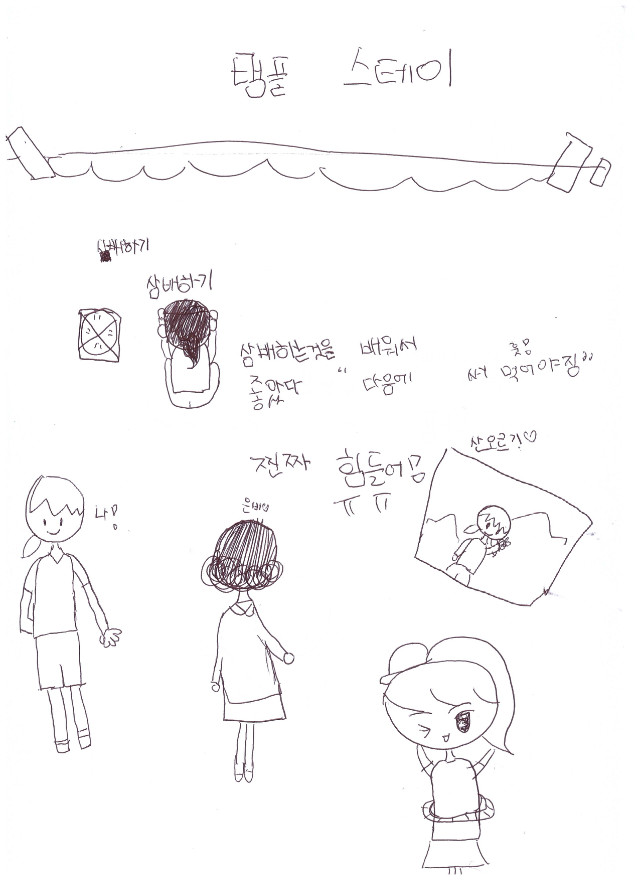 탬플 스테이
삼배하기
삼배하기
삼배하는것을 배워서
좋았다 “다음에 써 먹어야징”
찐짜 힘들어꼼
ㅠㅠ
산오르기♡
나!
은비♡